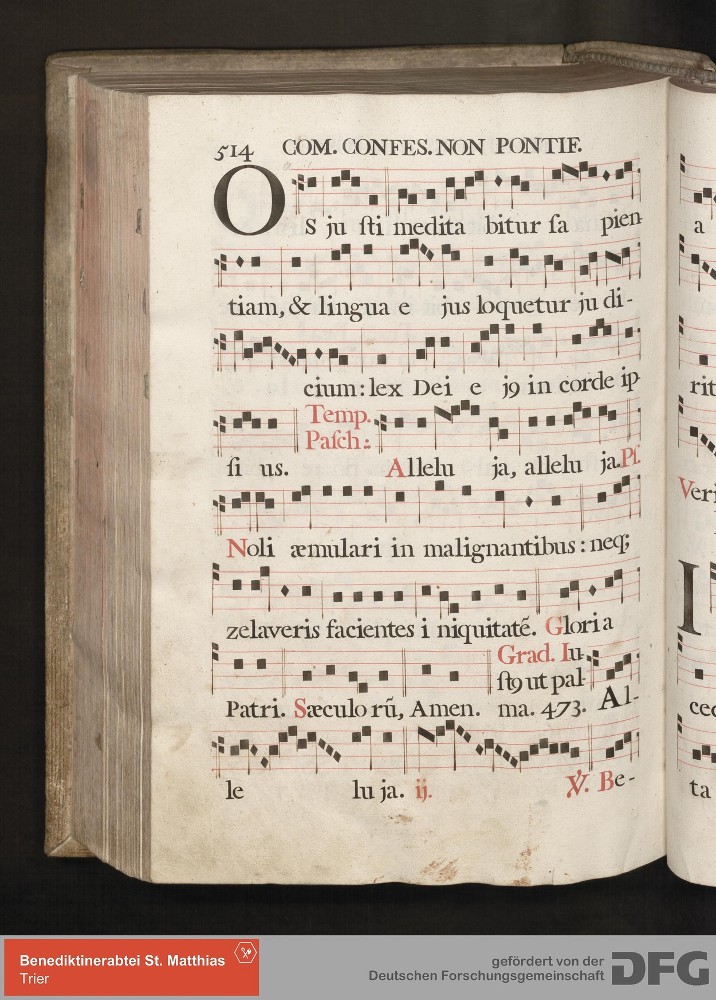 514 COM. CONFES. NON PONTIF.
OS ju ſti medita bitur ſa pien-
tiam, & lingua e jus loquetur ju di-
cium: lex Dei e jꝰ in corde ip
Temp.
Paſch.:
ſi us. Allelu ja, allelu ja. Pſ.
Noli æmulari in malignantibus: neq;
zelaveris facientes i niquitatẽ. Gloria
Grad. Iu-
ſtꝰ ut pal-
Patri. Sæculo rũ, Amen. ma. 473. Al-
le lu ja. ij. ℣. Be-
a
rit
Veri
I
ced
ta
Benediktinerabtei St. Matthias
Trier
gefördert von der
Deutschen Forschungsgemeinschaft DFG